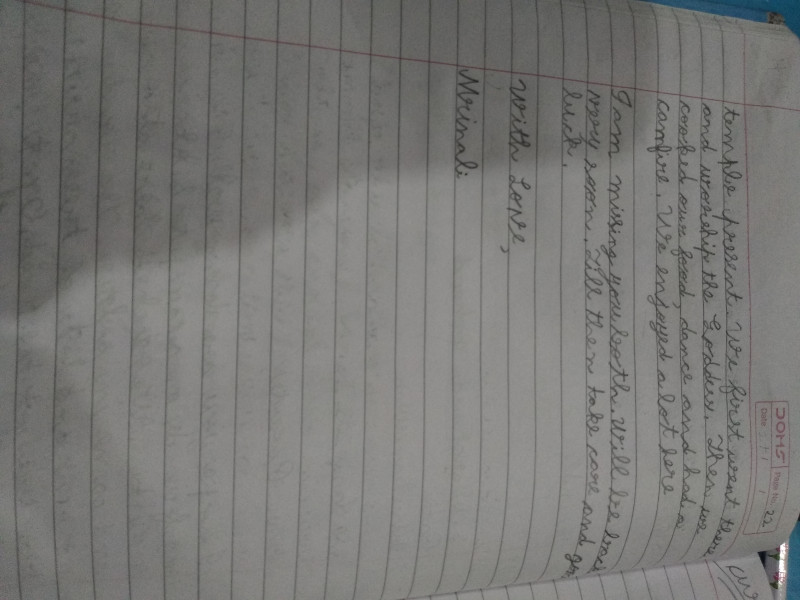 JOMS
Page No. 22
Date: / /
temple present. We first went there
and worship the Goddess. Then we
cooked our food, dance and had a
camfire. We enjoyed a lot here
I am missing you both. Will be back
very soon. Till then take care and
luck.
With Love,
Mrinali